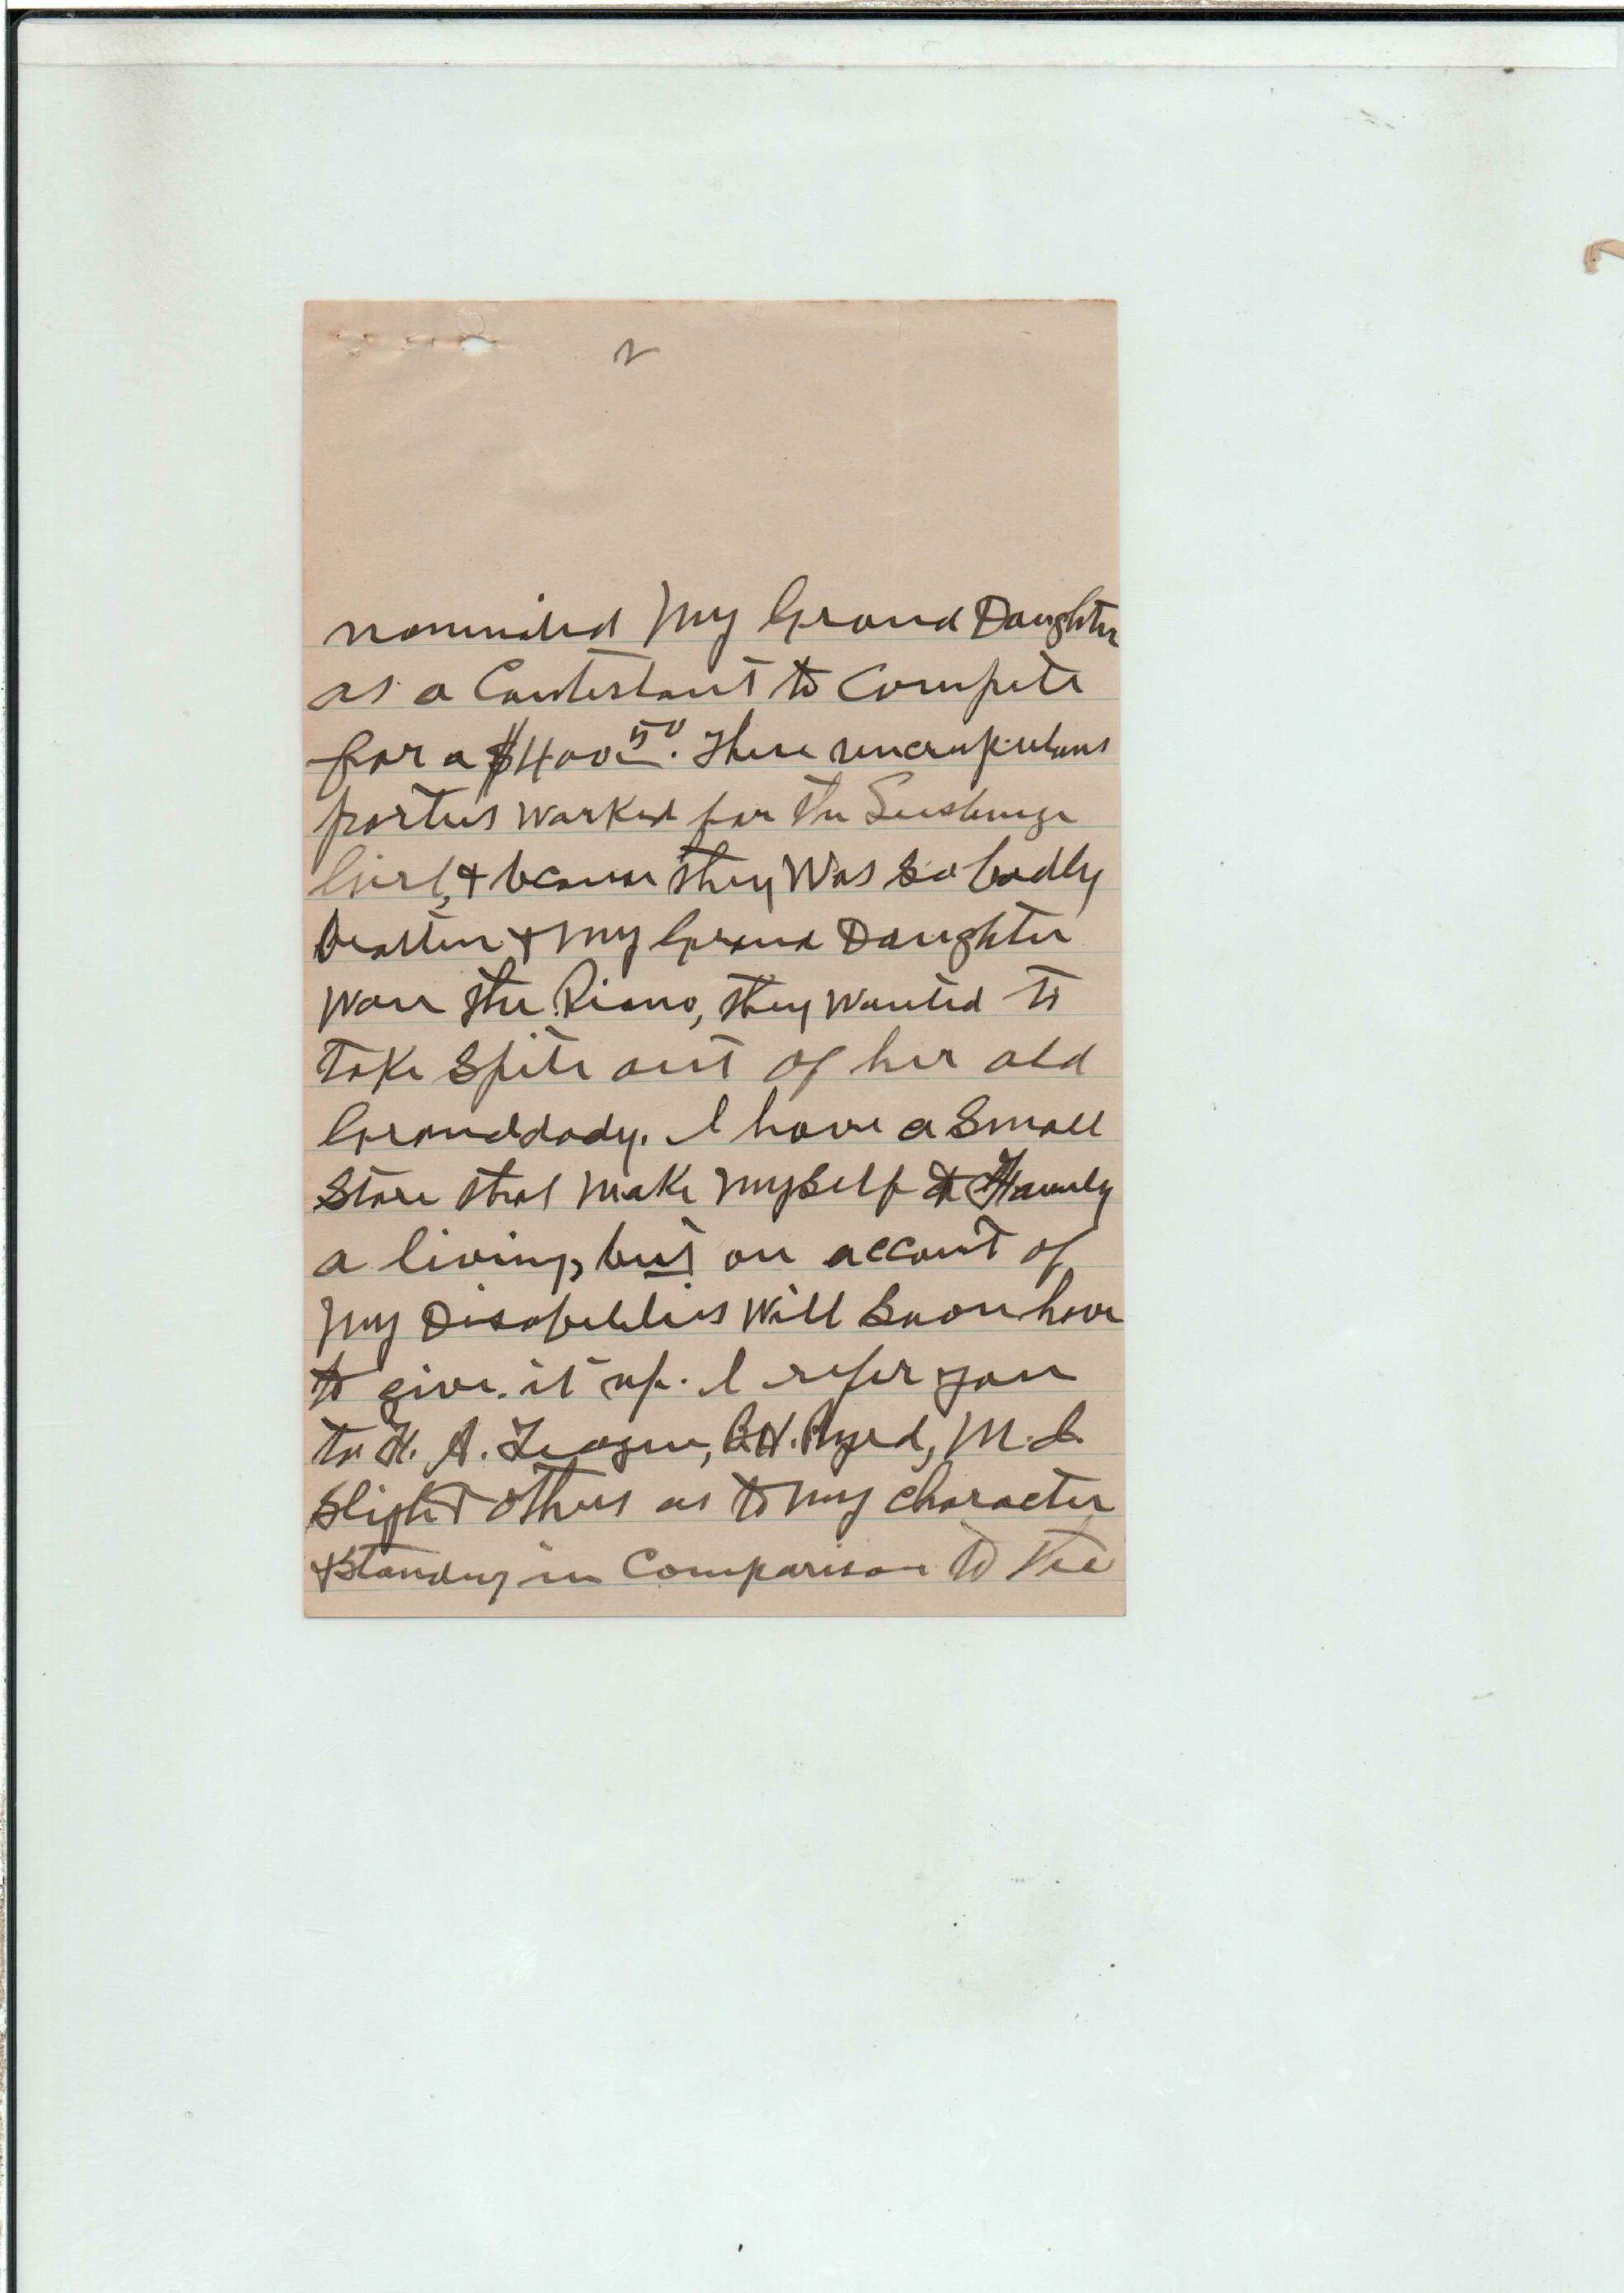 2
nominated My Grand Daughter
as a Contestant to Compete
for a $400.50. These uncrupulous
parties Worked for the
Girl, & because they Was So badly
beatten & My Grand Daughter
Won the Piano, they Wanted to
take Spite out of her old
Granddady. I have a Small
Store that Make Myself & Family
a living, but on account of
My Disabilities Will Soon have
to give it up. I refer you
to H. A. B.H. Byrd, M. L.
Sligh & others as to My Character
& Standing in Comparison to the